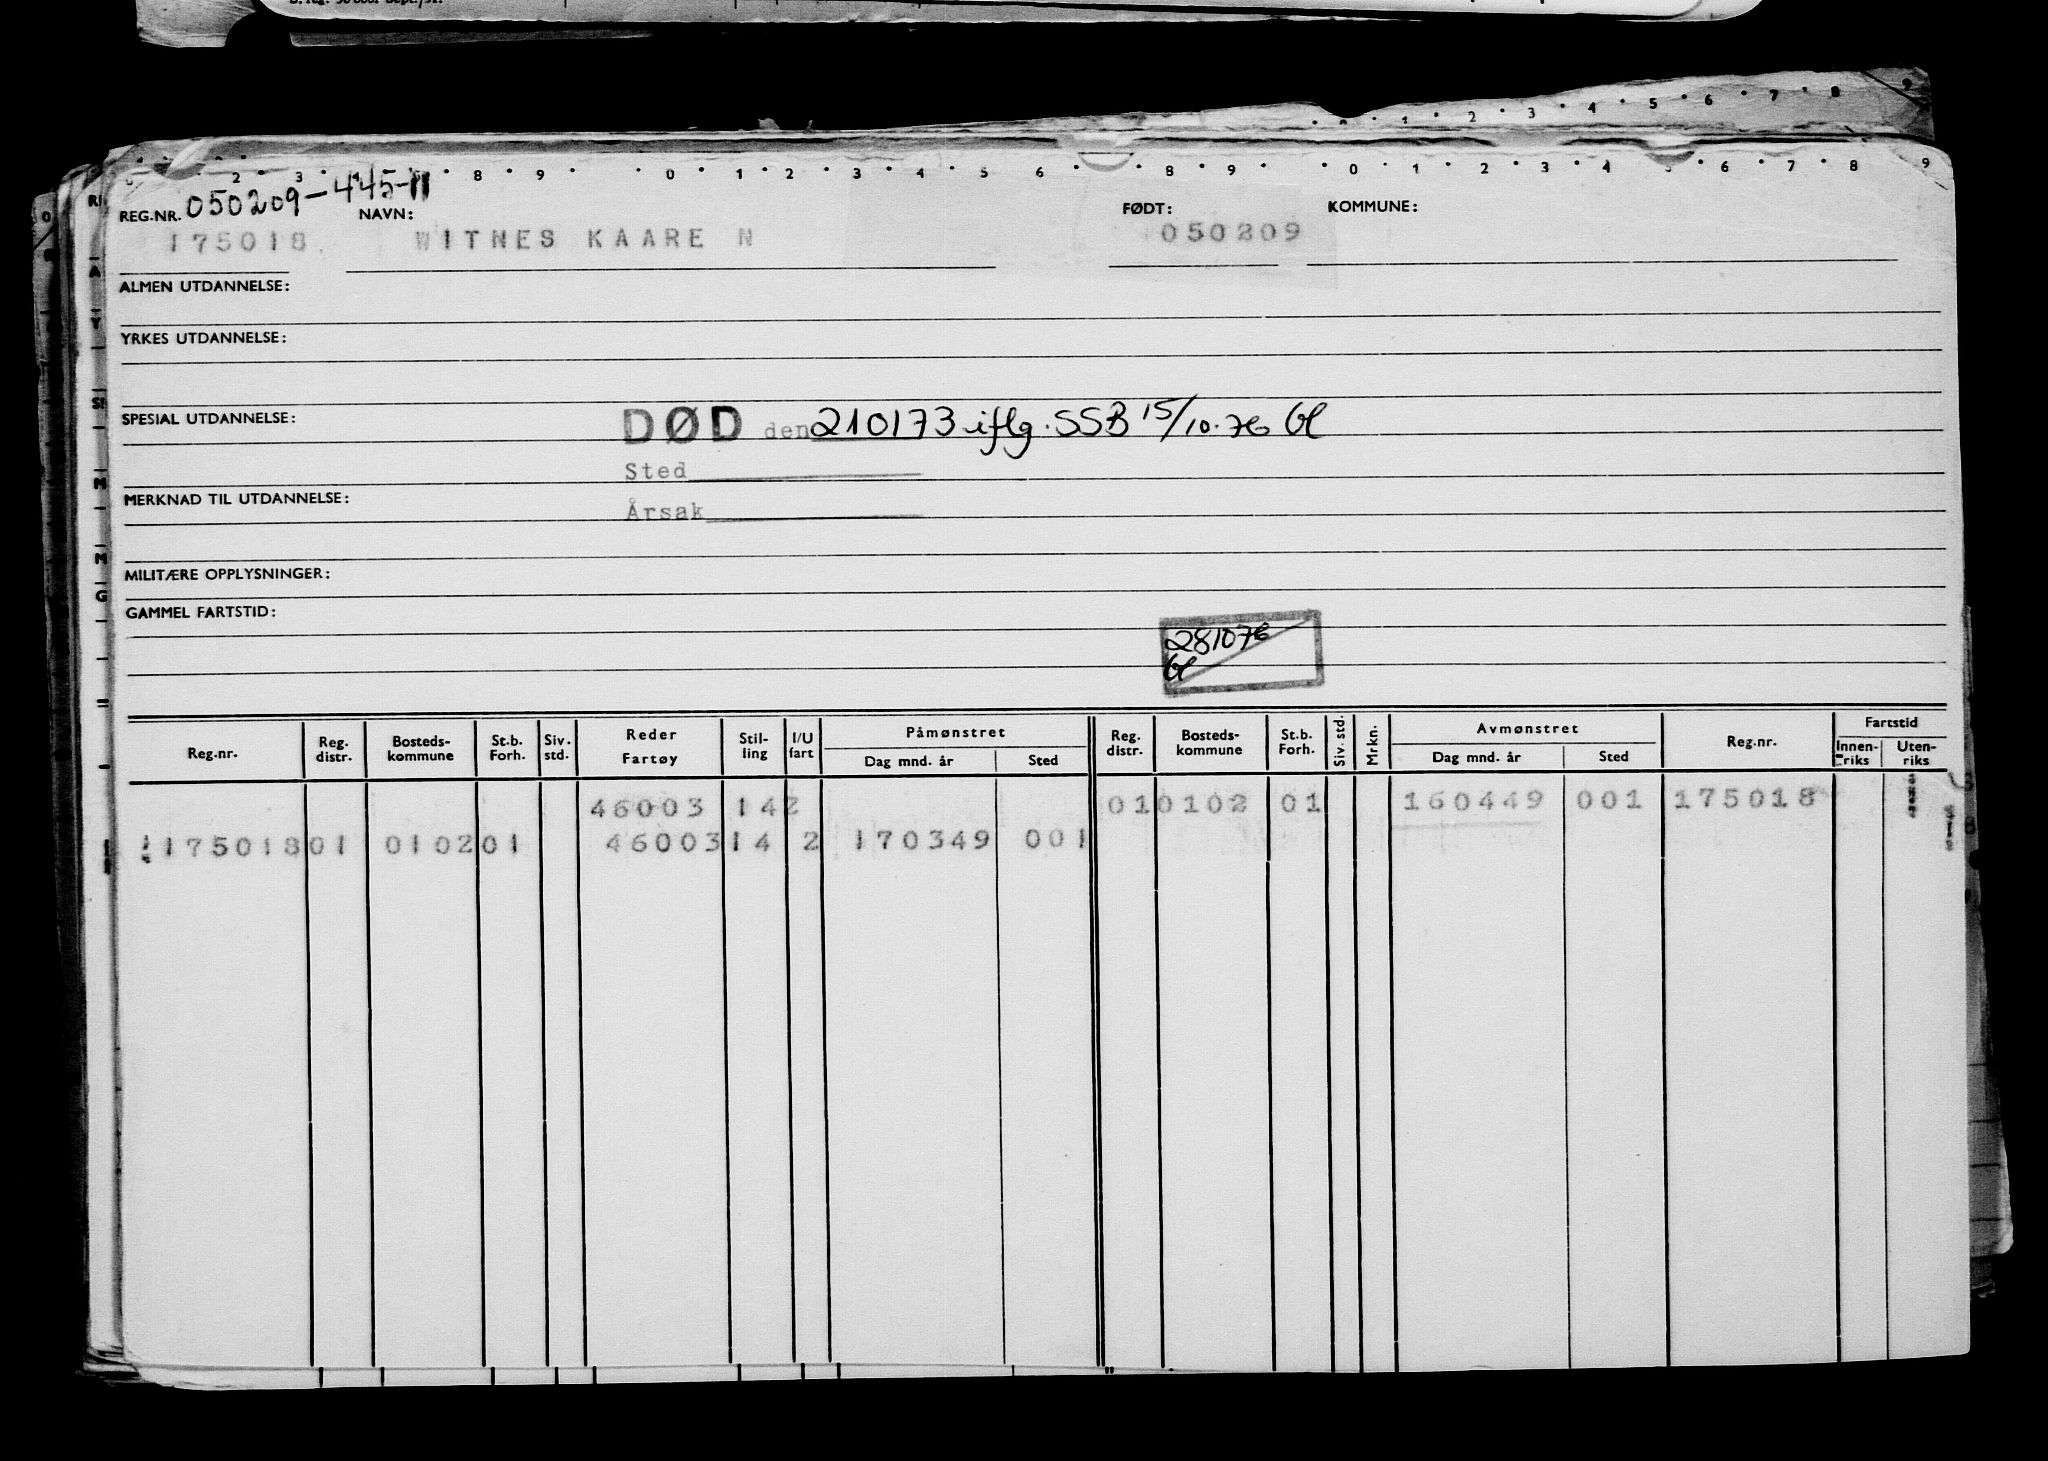 0 1 2 3 4 5 6 7 8 9
2 3 8 9 0 1 2 3 4 5 6 8 9 0 1 2 3 4 5 6 7 8 9
REG.NR. 050209-445-11 NAVN: FØDT: KOMMUNE:
175018 WITNES KAARE N 050209
ALMEN UTDANNELSE:
YRKES UTDANNELSE:
SPESIAL UTDANNELSE: DØD den 210173 iflg. SSB 15/10.76 bl
Sted
MERKNAD TIL UTDANNELSE: Årsak
MILITÆRE OPPLYSNINGER:
GAMMEL FARTSTID:
281076
bl
Reg.nr. Reg. distr. Bosteds-kommune St.b. Forh. Siv. std. Reder Fartøy Stil-ling I/U fart Påmønstret Dag mnd. år Sted Reg. distr. Bosteds-kommune St.b. Forh. Siv. std. Mrkn. Avmønstret Dag mnd. år Sted Reg.nr. Fartstid Innen-riks Uten-riks
46003 142 010102 01 160449 001 175018
175018 01 0102 01 46003 14 2 170349 001